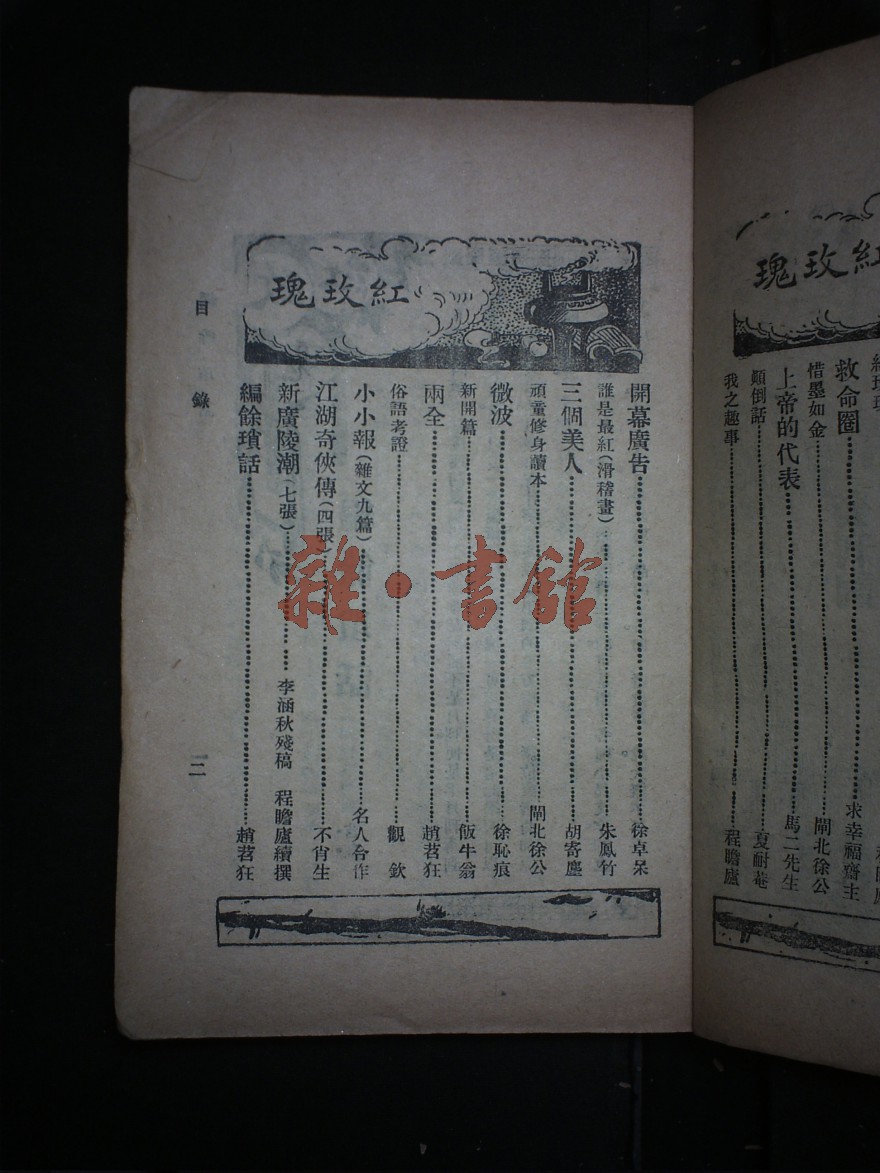 瑰玫紅
救命圈⋯⋯求幸福齋主
惜墨如金⋯⋯閘北徐公
上帝的代表⋯⋯馬二先生
顛倒話⋯⋯夏耐菴
我之趣事⋯⋯程瞻廬
瑰玫紅
開幕廣告⋯⋯徐卓呆
誰是最紅(滑稽畫)⋯⋯朱鳳竹
三個美人⋯⋯胡寄塵
頑童修身讀本⋯⋯閘北徐公
微波⋯⋯徐恥痕
新開篇⋯⋯飯牛翁
兩全⋯⋯趙苕狂
俗語考證⋯⋯觀欽
小小報(雜文九篇)⋯⋯名人合作
江湖奇俠傳(四張)⋯⋯不肖生
新廣陵潮(七張)⋯⋯李涵秋殘稿 程瞻廬續撰
編餘瑣話⋯⋯趙苕狂
目錄
二
雜·書館